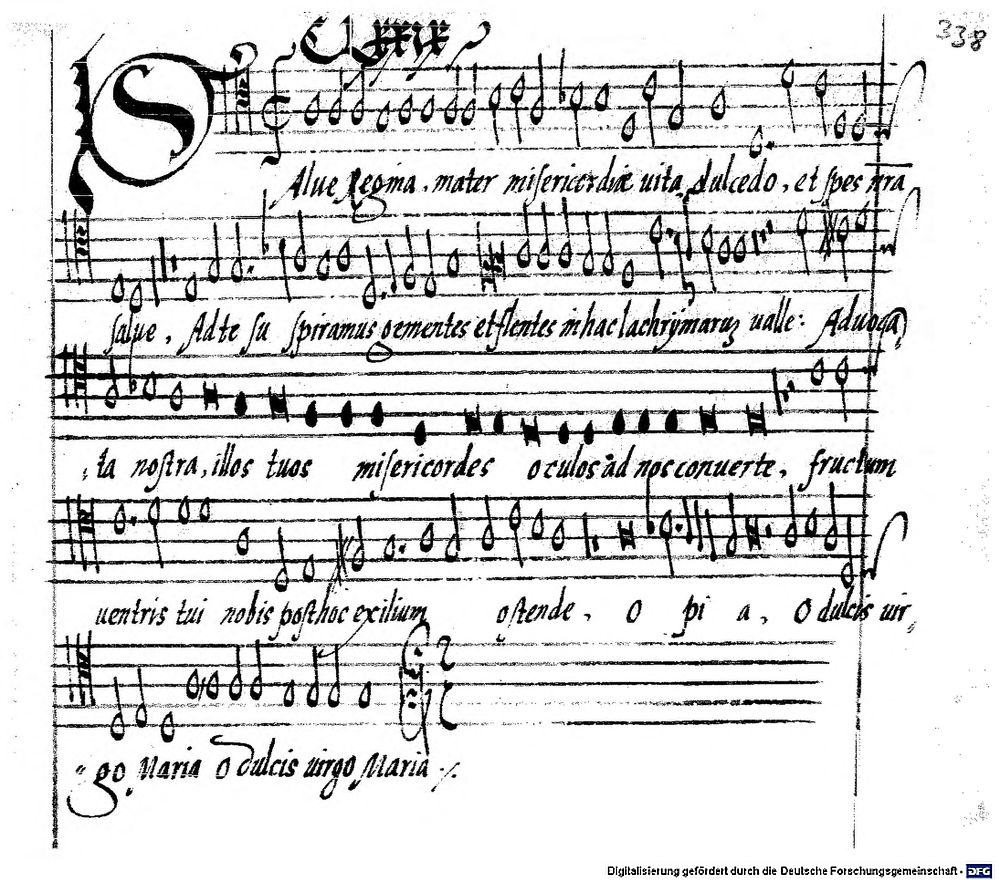 CLXXIX
338
SAlue Regina, mater misericordiæ uita dulcedo, et spes nra
salue, Ad te su spiramus gementes et flentes in hac lachrijmaruz ualle: Aduoca
ta nostra, illos tuos misericordes oculos ad nos conuerte, fructum
uentris tui nobis post hoc exilium ostende, O pi a, O dulcis uir,
go Maria O dulcis uirgo Maria
Digitalisierung gefördert durch die Deutsche Forschungsgemeinschaft - DFG